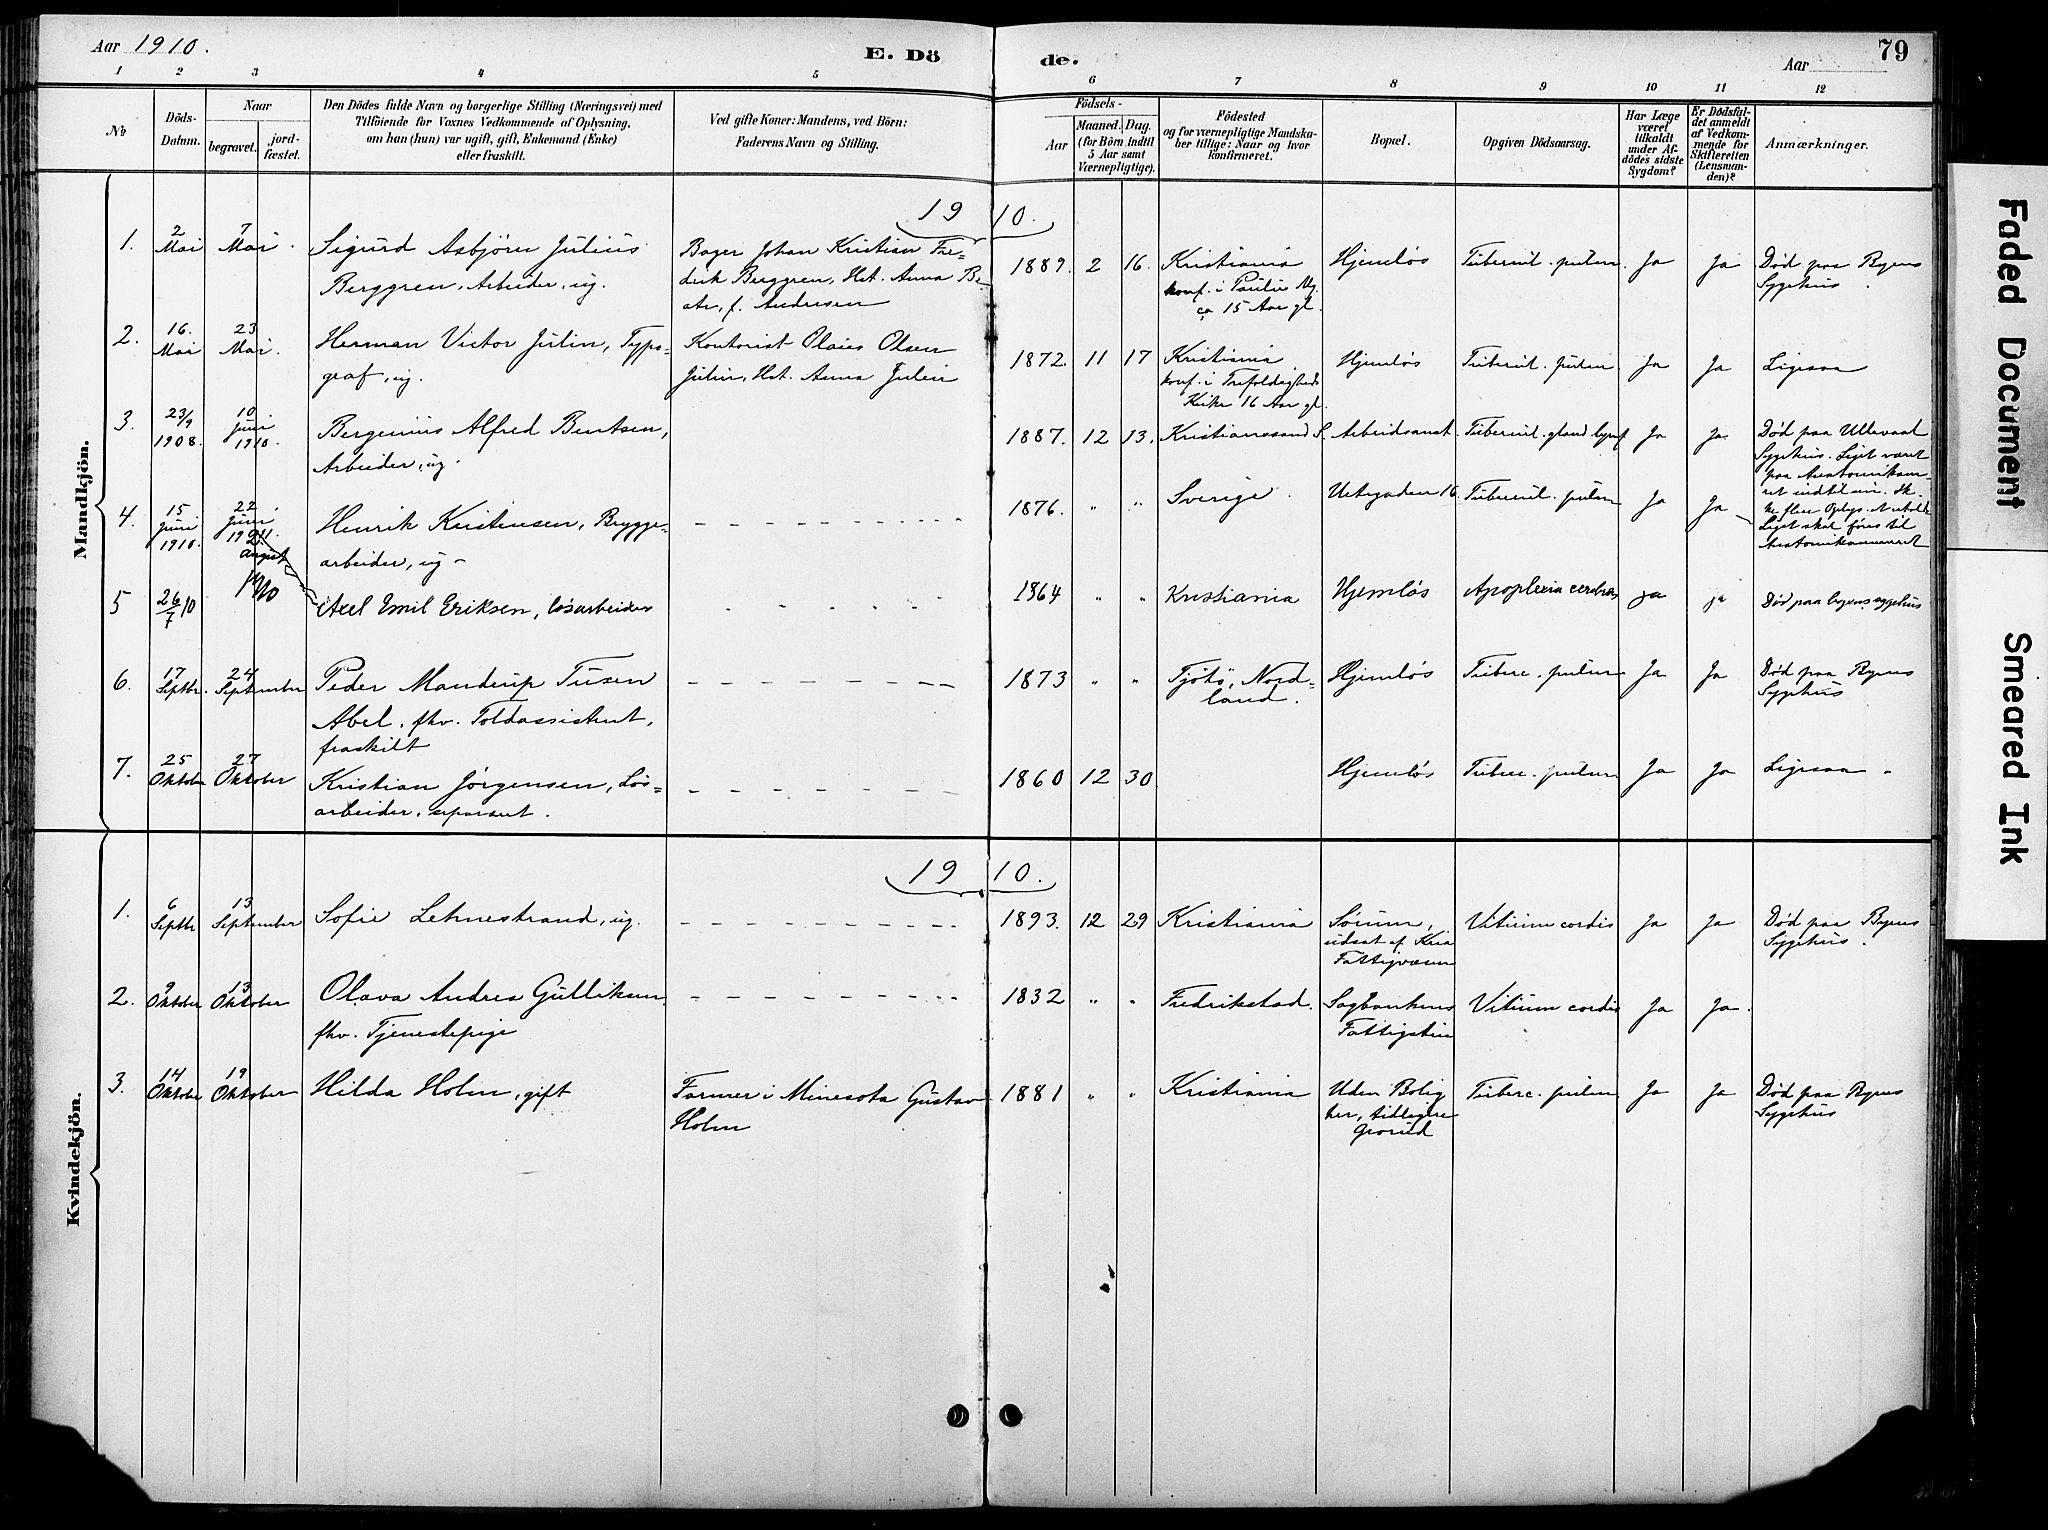 Aar 1910.
E. Döde.
Aar
79
1 2 3 4 5 6 7 8 9 10 11 12
No
Döds-Datum.
Naar
begravet.
jord-fæstet.
Den Dödes fulde Navn og borgerlige Stilling (Næringsvei) med
Tilföiende for Voxnes Vedkommende af Oplysning,
om han (hun) var ugift, gift, Enkemand (Enke)
eller fraskilt.
Ved gifte Koner: Mandens, ved Börn:
Faderens Navn og Stilling.
Födsels-
Aar
Maaned. Dag.
(for Börn indtil
5 Aar samt
Værnepligtige).
Födested
og for værnepligtige Mandska-
ber tillige: Naar og hvor
konfirmeret.
Bopæl.
Opgiven Dödsaarsag.
Har Læge
været
tilkaldt
under Af-
dödes sidste
Sygdom?
Er Dödsfal-
det anmeldt
af Vedkom-
mende for
Skifteretten
(Lensman-
den)?
Anmærkninger.
Mandkjön.
1910.
1. 2 Mai 7 Mai. Sigurd Asbjörn Julius
Berggren, Arbeider, ug.
Bager Johan Kristian Fre-
drik Berggren, Hst. Anna Be-
ate, f. Andersen
1889. 2 16. Kristiania
konf. i Paulus Mg.
ca 15 Aar gl.
Hjemløs Tubercul. pulm Ja Ja Død paa Byens
Sygehus.
2. 16. Mai 23 Mai. Herman Victor Julin, Typo-
graf, ug.
Kontorist Olaus Olsen
Julin, Hst. Anna Julin
1872. 11 17 Kristiania
konf. i Trefoldigheds
Kirke 16 Aar gl.
Hjemløs Tubercul. pulm. Ja Ja Ligesaa
3. 23/9 1908. 10 Juni 1910. Bergenius Alfred Bentsen,
Arbeider, ug.
1887. 12 13. Kristianssand S. Arbeidsanst. Tubercul. gland lymf Ja Ja. Død paa Ullevaal
Sygehus. Liget været
paa Anatomikam-
ret indtil nu.
4. 15 Juni 1910. 22 Juni Henrik Kristensen, Brygge-
arbeider, ug -
1876. " " Sverige. Urtegaden 16. Tubercul. pulm Ja Ja
Liget skal føres til
Anatomikammeret
5 26/7 10 August Axel Emil Eriksen, løsarbeider
1864 " " Kristiania Hjemløs Apoplexia cerebri ja ja Død paa byens sygehus
6. 17 Septbr. 24 September Peder Manderup Tusen
Abel, fhv. Toldassistent,
fraskilt
1873 " " Tjøtø, Nord-
land.
Hjemløs Tuberc. pulm Ja Ja Død paa Byens
Sygehus
7. 25 Oktober 27 Oktober Kristian Jørgensen, Løs-
arbeider, separert.
1860 12 30 Hjemløs Tuberc. pulm Ja Ja Ligesaa
Kvindekjön.
1910.
1. 6 Septbr 13 September Sofie Lehnestrand, ug.
1893. 12 29 Kristiania Sørum,
udsat af Kria
Fattigvæsen
Vitium cordis Ja Ja Død paa Byens
Sygehus.
2. 9 Oktober 13 Oktober Olava Andrea Gulliksen
fhv. Tjenestepige
1832 " " Fredrikstad. Sagbankens
Fattigstue
Vitium cordis Ja Ja.
3. 14 Oktober 19 Oktober Hilda Holm, gift
Farmer i Minesota Gustav
Holm
1881 " " Kristiania Uden Bolig
her, tidligere
Grorud
Tuberc. pulm Ja Ja Død paa Byens
Sygehus
Faded Document
Smeared Ink